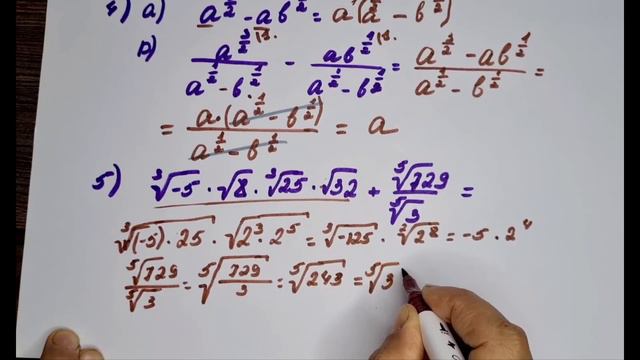 4) a) a^{3/2} - ab^{1/2} = a(a^{1/2} - b^{1/2})
b) \frac{a^{3/2}}{a^{1/2} - b^{1/2}} - \frac{ab^{1/2}}{a^{1/2} - b^{1/2}} = \frac{a^{3/2} - ab^{1/2}}{a^{1/2} - b^{1/2}} =
= \frac{a \cdot (a^{1/2} - b^{1/2})}{a^{1/2} - b^{1/2}} = a
5) \sqrt[3]{-5} \cdot \sqrt{8} \cdot \sqrt[3]{25} \cdot \sqrt{32} + \frac{\sqrt[5]{729}}{\sqrt[5]{3}} =
\sqrt[3]{(-5) \cdot 25} \cdot \sqrt{2^3 \cdot 2^5} = \sqrt[3]{-125} \cdot \sqrt[2]{2^8} = -5 \cdot 2^4
\frac{\sqrt[5]{729}}{\sqrt[5]{3}} = \sqrt[5]{\frac{729}{3}} = \sqrt[5]{243} = \sqrt[5]{3}